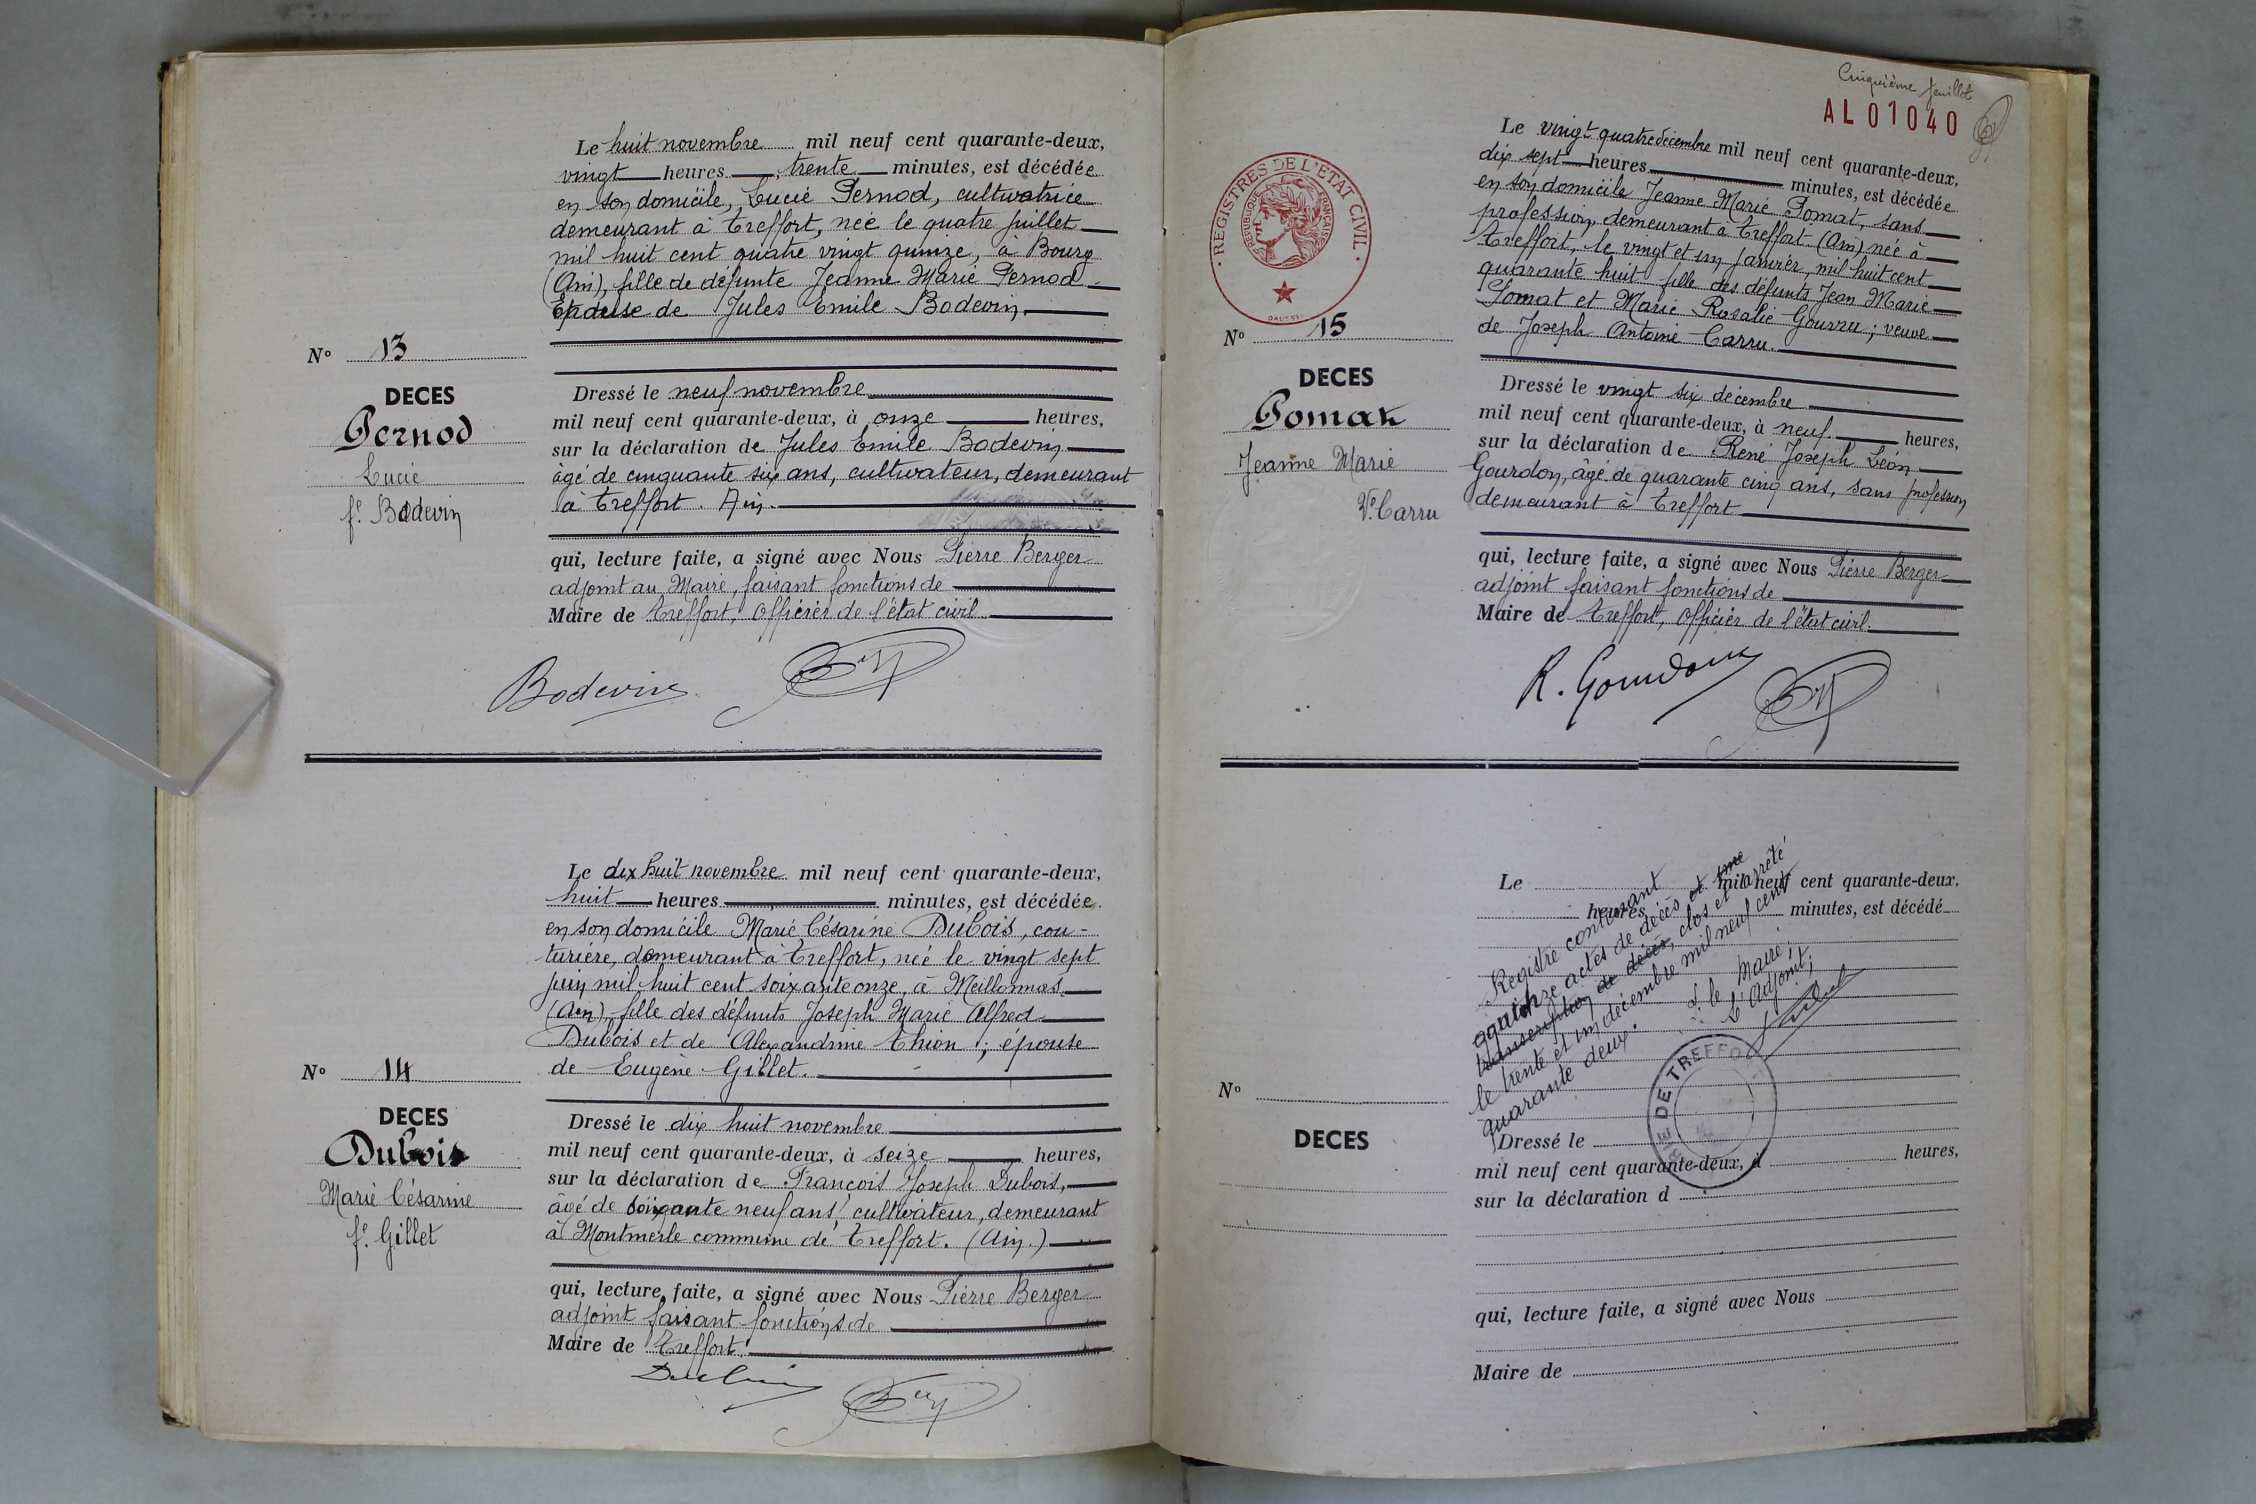 Le huit novembre mil neuf cent quarante-deux,
vingt heures trente minutes, est décédée
en son domicile, Lucie Pernod, cultivatrice
demeurant à Treffort, née le quatre juillet
mil huit cent quatre vingt quinze, à Bourg
(Ain), fille de défunte Jeanne Marie Pernod
Epouse de Jules Emile Bodevin.
N° 13
DECES
Pernod
Lucie
fe. Bodevin
Dressé le neuf novembre
mil neuf cent quarante-deux, à onze heures,
sur la déclaration de Jules Emile Bodevin
âgé de cinquante six ans, cultivateur, demeurant
à Treffort. Ain.
qui, lecture faite, a signé avec Nous Pierre Berger
adjoint au Maire, faisant fonctions de
Maire de Treffort, Officier de l'état civil
Bodevin
Le dix huit novembre mil neuf cent quarante-deux,
huit heures minutes, est décédée
en son domicile Marie Césarine Dubois, cou-
turière, demeurant à Treffort, née le vingt sept
juin mil huit cent soixante onze, à Meillonnas
(Ain), fille des défunts Joseph Marie Alfred
Dubois et de Alexandrine Thion ; épouse
de Eugène Gillet.
N° 14
DECES
Dubois
Marie Césarine
fe. Gillet
Dressé le dix huit novembre
mil neuf cent quarante-deux, à seize heures,
sur la déclaration de François Joseph Dubois,
âgé de soixante neuf ans, cultivateur, demeurant
à Montmerle commune de Treffort. (Ain.)
qui, lecture faite, a signé avec Nous Pierre Berger
adjoint faisant fonctions de
Maire de Treffort
Cinquième feuillet
AL01040
REGISTRES DE L'ETAT CIVIL
REPUBLIQUE FRANÇAISE
Le vingt quatre décembre mil neuf cent quarante-deux,
dix sept heures minutes, est décédée
en son domicile Jeanne Marie Pomat, sans
profession, demeurant à Treffort (Ain) née à
Treffort, le vingt et un janvier, mil huit cent
quarante huit fille des défunts Jean Marie
Pomat et Marie Rosalie Gouvzu ; veuve
de Joseph Antoine Carru.
N° 15
DECES
Pomat
Jeanne Marie
Ve. Carru
Dressé le vingt six décembre
mil neuf cent quarante-deux, à neuf heures,
sur la déclaration de René Joseph Léon
Gourdon, âgé de quarante cinq ans, sans profession
demeurant à Treffort
qui, lecture faite, a signé avec Nous Pierre Berger
adjoint faisant fonctions de
Maire de Treffort, Officier de l'état civil.
R. Gourdon
Le mil neuf cent quarante-deux,
heures minutes, est décédé
Registre contenant
quinze actes de décès et une
transcription de décès, clos et arrêté
le trente et un décembre mil neuf cent
quarante deux.
le Maire,
L'Adjoint,
DE TREFFO
N°
DECES
Dressé le
mil neuf cent quarante-deux, à heures,
sur la déclaration d
qui, lecture faite, a signé avec Nous
Maire de